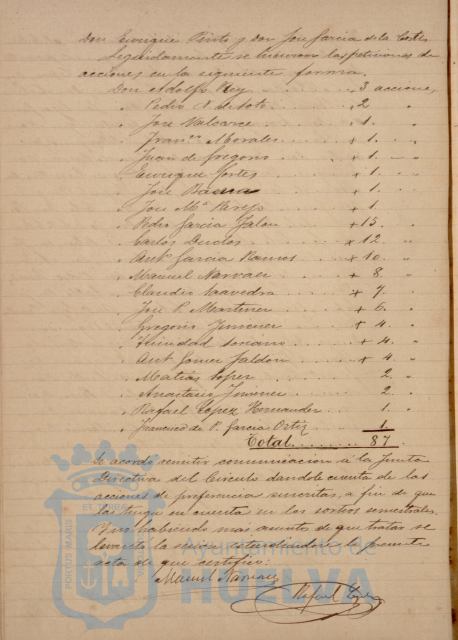 Don Enrique Pinto y Don José Garcia de la Cortes
Seguidamente se hicieron las peticiones de
acciones en la siguiente forma.
Don Adolfo Rey + 3 acciones
" Pedro N. de Soto + 2 "
" José Valcarce + 1. "
" Fran.co Morales + 1. "
" Juan de Gregorio + 1. "
" Enrique Cortes + 1. "
" José + 1 "
" José Mª + 1. "
" Pedro Garcia Jalon + 15. "
" Carlos Duclos + 12. "
" Antº Garcia Ramos + 10. "
" Manuel Narvaez + 8. "
" Claudio Saavedra + 7. "
" José P. Martinez + 6. "
" Gregorio Jimenez + 4. "
" Trinidad Soriano + 4. "
" Ant. Gomez Jaldon + 4 "
" Matias Lopez 2. "
" Anastasio Jimenez 2. "
" Rafael Lopez Hernandez 1. "
" Francisco de P. Garcia Ortiz 1.
Total 87
Se acordó remitir comunicacion á la Junta
Directiva del Circulo dandole cuenta de las
acciones de preferencia suscritas, a fin de que
las tenga en cuenta en los sorteos semestrales.
Y no habiendo mas asuntos de que tratar se
levantó la sesion extendiendose la presente
acta de que certifico:
Manuel Narvaez
Rafael Lopez
PORTUS MARIS ET TERRAE
Ayuntamiento de
HUELVA